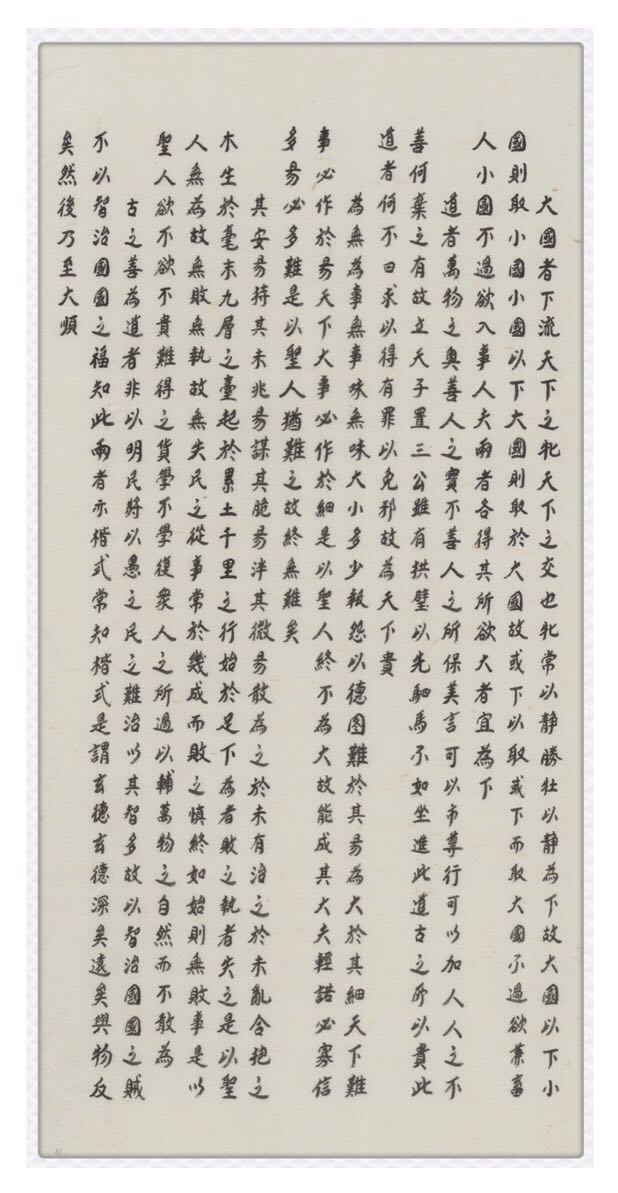 大國者下流天下之牝天下之交也牝常以静勝牡以静為下故大國以下小
國則取小國小國以下大國則取於大國故或下以取或下而取大國不過欲兼畜
人小國不過欲入事人夫兩者各得其所欲大者宜為下
道者萬物之奥善人之寶不善人之所保美言可以市尊行可以加人人之不
善何棄之有故立天子置三公雖有拱璧以先駟馬不如坐進此道古之所以貴此
道者何不曰求以得有罪以免邪故為天下貴
為無為事無事味無味大小多少報怨以德图難於其易為大於其細天下難
事必作於易天下大事必作於細是以聖人終不為大故能成其大夫輕諾必寡信
多易必多難是以聖人猶難之故終無難矣
其安易持其未兆易謀其脆易泮其微易散為之於未有治之於未亂合抱之
木生於毫末九層之臺起於累土千里之行始於足下為者敗之執者失之是以聖
人無為故無敗無執故無失民之從事常於幾成而敗之慎終如始則無敗事是以
聖人欲不欲不貴難得之貨學不學復衆人之所過以輔萬物之自然而不敢為
古之善為道者非以明民將以愚之民之難治以其智多故以智治國國之賊
不以智治國國之福知此兩者亦楷式常知楷式是謂玄德玄德深矣遠矣與物反
矣然後乃至大順